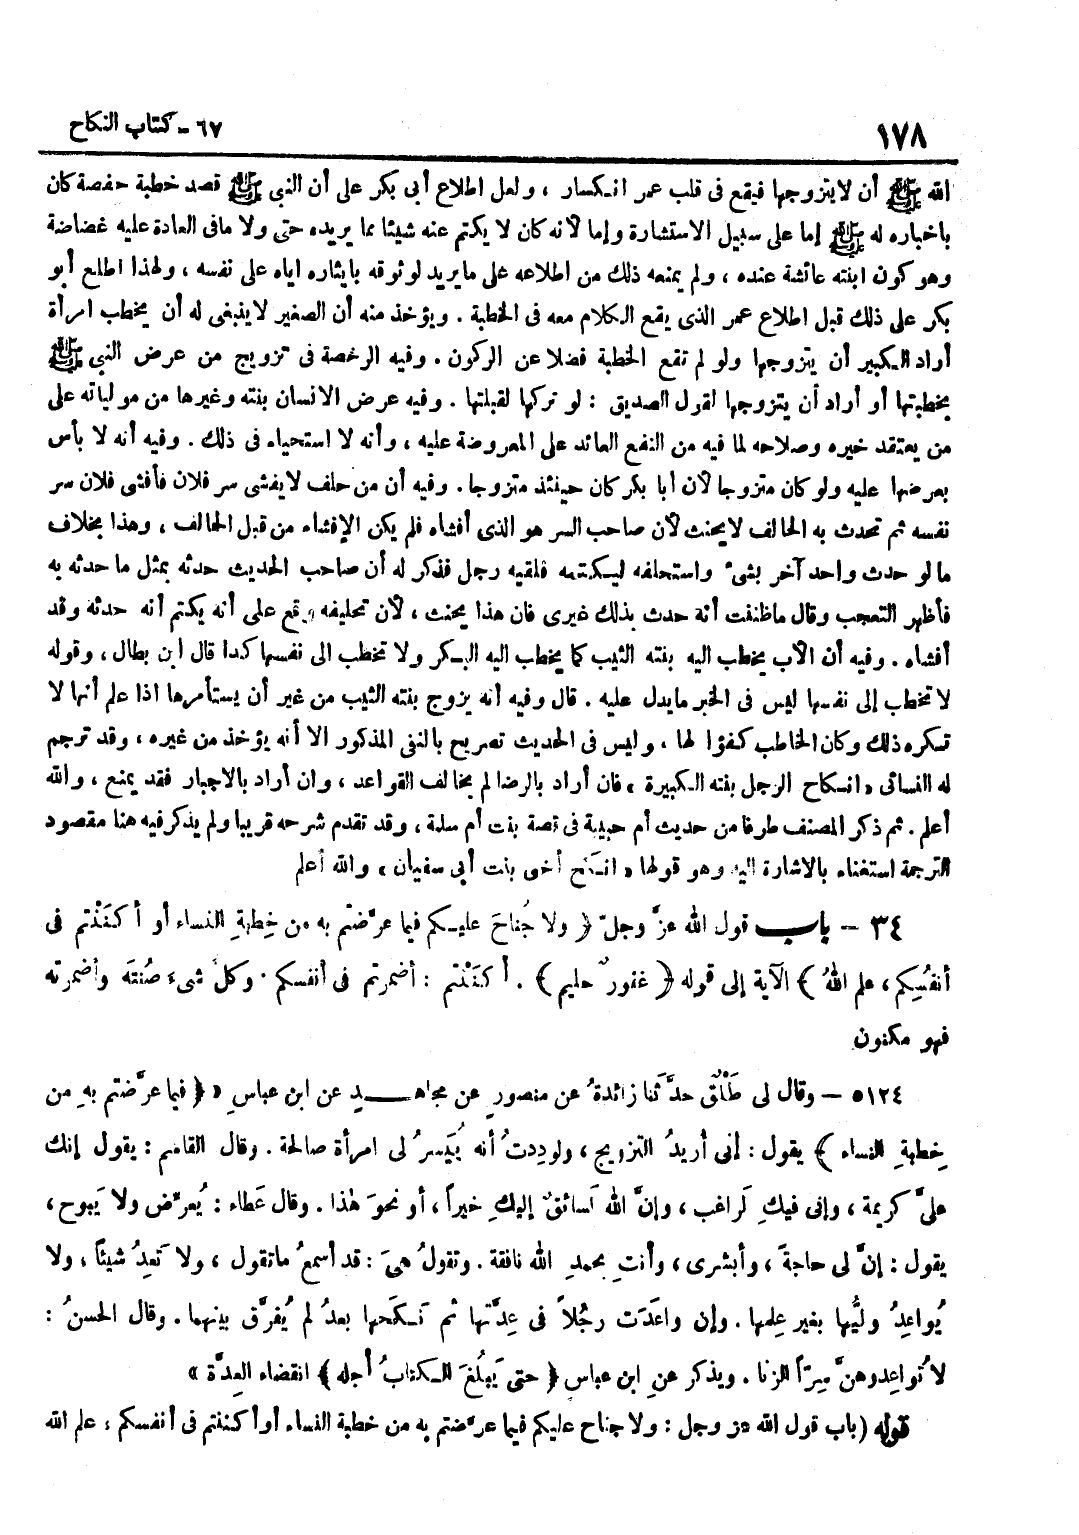 ١٧٨ ٦٧ - كتاب النكاح
الله ﷺ أن لا يتزوجها فيقع فى قلب عمر انكسار ، ولعل اطلاع أبى بكر على أن النبى ﷺ قصد خطبة حفصة كان
باخباره له ﷺ إما على سبيل الاستشارة وإما لأنه كان لا يكتم عنه شيئا مما يريده حتى ولا مافى العادة عليه غضاضة
وهو كون ابنته عائشة عنده ، ولم يمنعه ذلك من اطلاعه على ما يريد لوثوقه بايثاره اياه على نفسه ، ولهذا اطلع أبو
بكر على ذلك قبل اطلاع عمر الذى يقع الكلام معه فى الخطبة . ويؤخذ منه أن الصغير لا ينبغى له أن يخطب امرأة
أراد الكبير أن يتزوجها ولو لم تقع الخطبة فضلا عن الركون . وفيه الرخصة فى تزويج من عرض النبى ﷺ
بخطبتها أو أراد أن يتزوجها لقول الصديق : لو تركها لقبلتها . وفيه عرض الانسان بنته وغيرها من مولياته على
من يعتقد خيره وصلاحه لما فيه من النفع العائد على المعروضة عليه ، وأنه لا استحياء فى ذلك . وفيه أنه لا بأس
بعرضها عليه ولو كان متزوجا لأن أبا بكر كان حينئذ متزوجا . وفيه أن من حلف لا يفشى سر فلان فأفشى فلان سر
نفسه ثم تحدث به الحالف لا يحنث لأن صاحب السر هو الذى أفشاه فلم يكن الإفشاء من قبل الحالف ، وهذا بخلاف
ما لو حدث واحد آخر بشىء واستحلفه ليكتمه فلقيه رجل فذكر له أن صاحب الحديث حدثه بمثل ما حدثه به
فأظهر التعجب وقال ماظننت أنه حدث بذلك غيرى فان هذا يحنث ، لأن تحليفه وقع على أنه يكتم أنه حدثه وقد
أفشاه . وفيه أن الأب يخطب اليه بنته الثيب كما يخطب اليه البكر ولا تخطب الى نفسها كذا قال ابن بطال ، وقوله
لا تخطب إلى نفسها ليس فى الخبر مايدل عليه . قال وفيه أنه يزوج بنته الثيب من غير أن يستأمرها اذا علم أنها لا
تكره ذلك وكان الخاطب كفؤا لها ، وليس فى الحديث تصريح بالنفى المذكور الا أنه يؤخذ من غيره ، وقد ترجم
له النسائى « انكاح الرجل بنته الكبيرة » فان أراد بالرضا لم يخالف القواعد ، وان أراد بالاجبار فقد يمنع ، والله
أعلم . ثم ذكر المصنف طرفا من حديث أم حبيبة فى قصة بنت أم سلمة ، وقد تقدم شرحه قريبا ولم يذكر فيه هنا مقصود
الترجمة استغناء بالاشارة اليه وهو قولها « انكح أختى بنت أبى سفيان » والله أعلم
٣٤ - باب قول الله عزَّ وجلّ ﴿ ولا جُناحَ عليكم فيما عرَّضتم به من خِطبةِ النساء أو أكنَنْتم فى
أنفُسِكم ، علم اللهُ ﴾ الآية إلى قوله ﴿ غفورٌ حليم ﴾ . أكنَنْتم : أضمرتم فى أنفسكم . وكلُّ شىء صُنتَه وأضمرتَه
فهو مكنون
٥١٢٤ - وقال لى طَلْقٌ حدَّثَنا زائدةُ عن منصورٍ عن مجاهدٍ عن ابن عباسٍ « ﴿ فيما عرَّضتم بهِ من
خِطبةِ النساء ﴾ يقول : إنى أريدُ التزويج ، ولودِدتُ أنه يُيَسرُ لى امرأة صالحة . وقال القاسم : يقول إنك
علىَّ كريمة ، وإنى فيكِ لَراغب ، وإنَّ الله لَسائقٌ إليكِ خيراً ، أو نحوَ هذا . وقال عَطاء : يُعرِّض ولا يَبوح ،
يقول : إنَّ لى حاجةً ، وأبشرى ، وأنتِ بحمدِ الله نافقة . وتقولُ هىَ : قد أسمعُ ماتقول ، ولا تَعِدُ شيئاً ، ولا
يُواعِدُ وليُّها بغير عِلمها . وإن واعَدَت رجُلاً فى عِدَّتها ثم نَكحها بعدُ لم يُفرَّق بينهما . وقال الحسنُ :
لا تُواعِدوهنَّ سِرّاً الزنا . ويذكر عنِ ابن عباس ﴿ حتى يَبلُغَ الكتابُ أجله ﴾ انقضاء العِدَّة »
قوله ( باب قول الله عز وجل : ولا جناح عليكم فيما عرضتم به من خطبة النساء أو أكننتم فى أنفسكم ، علم الله